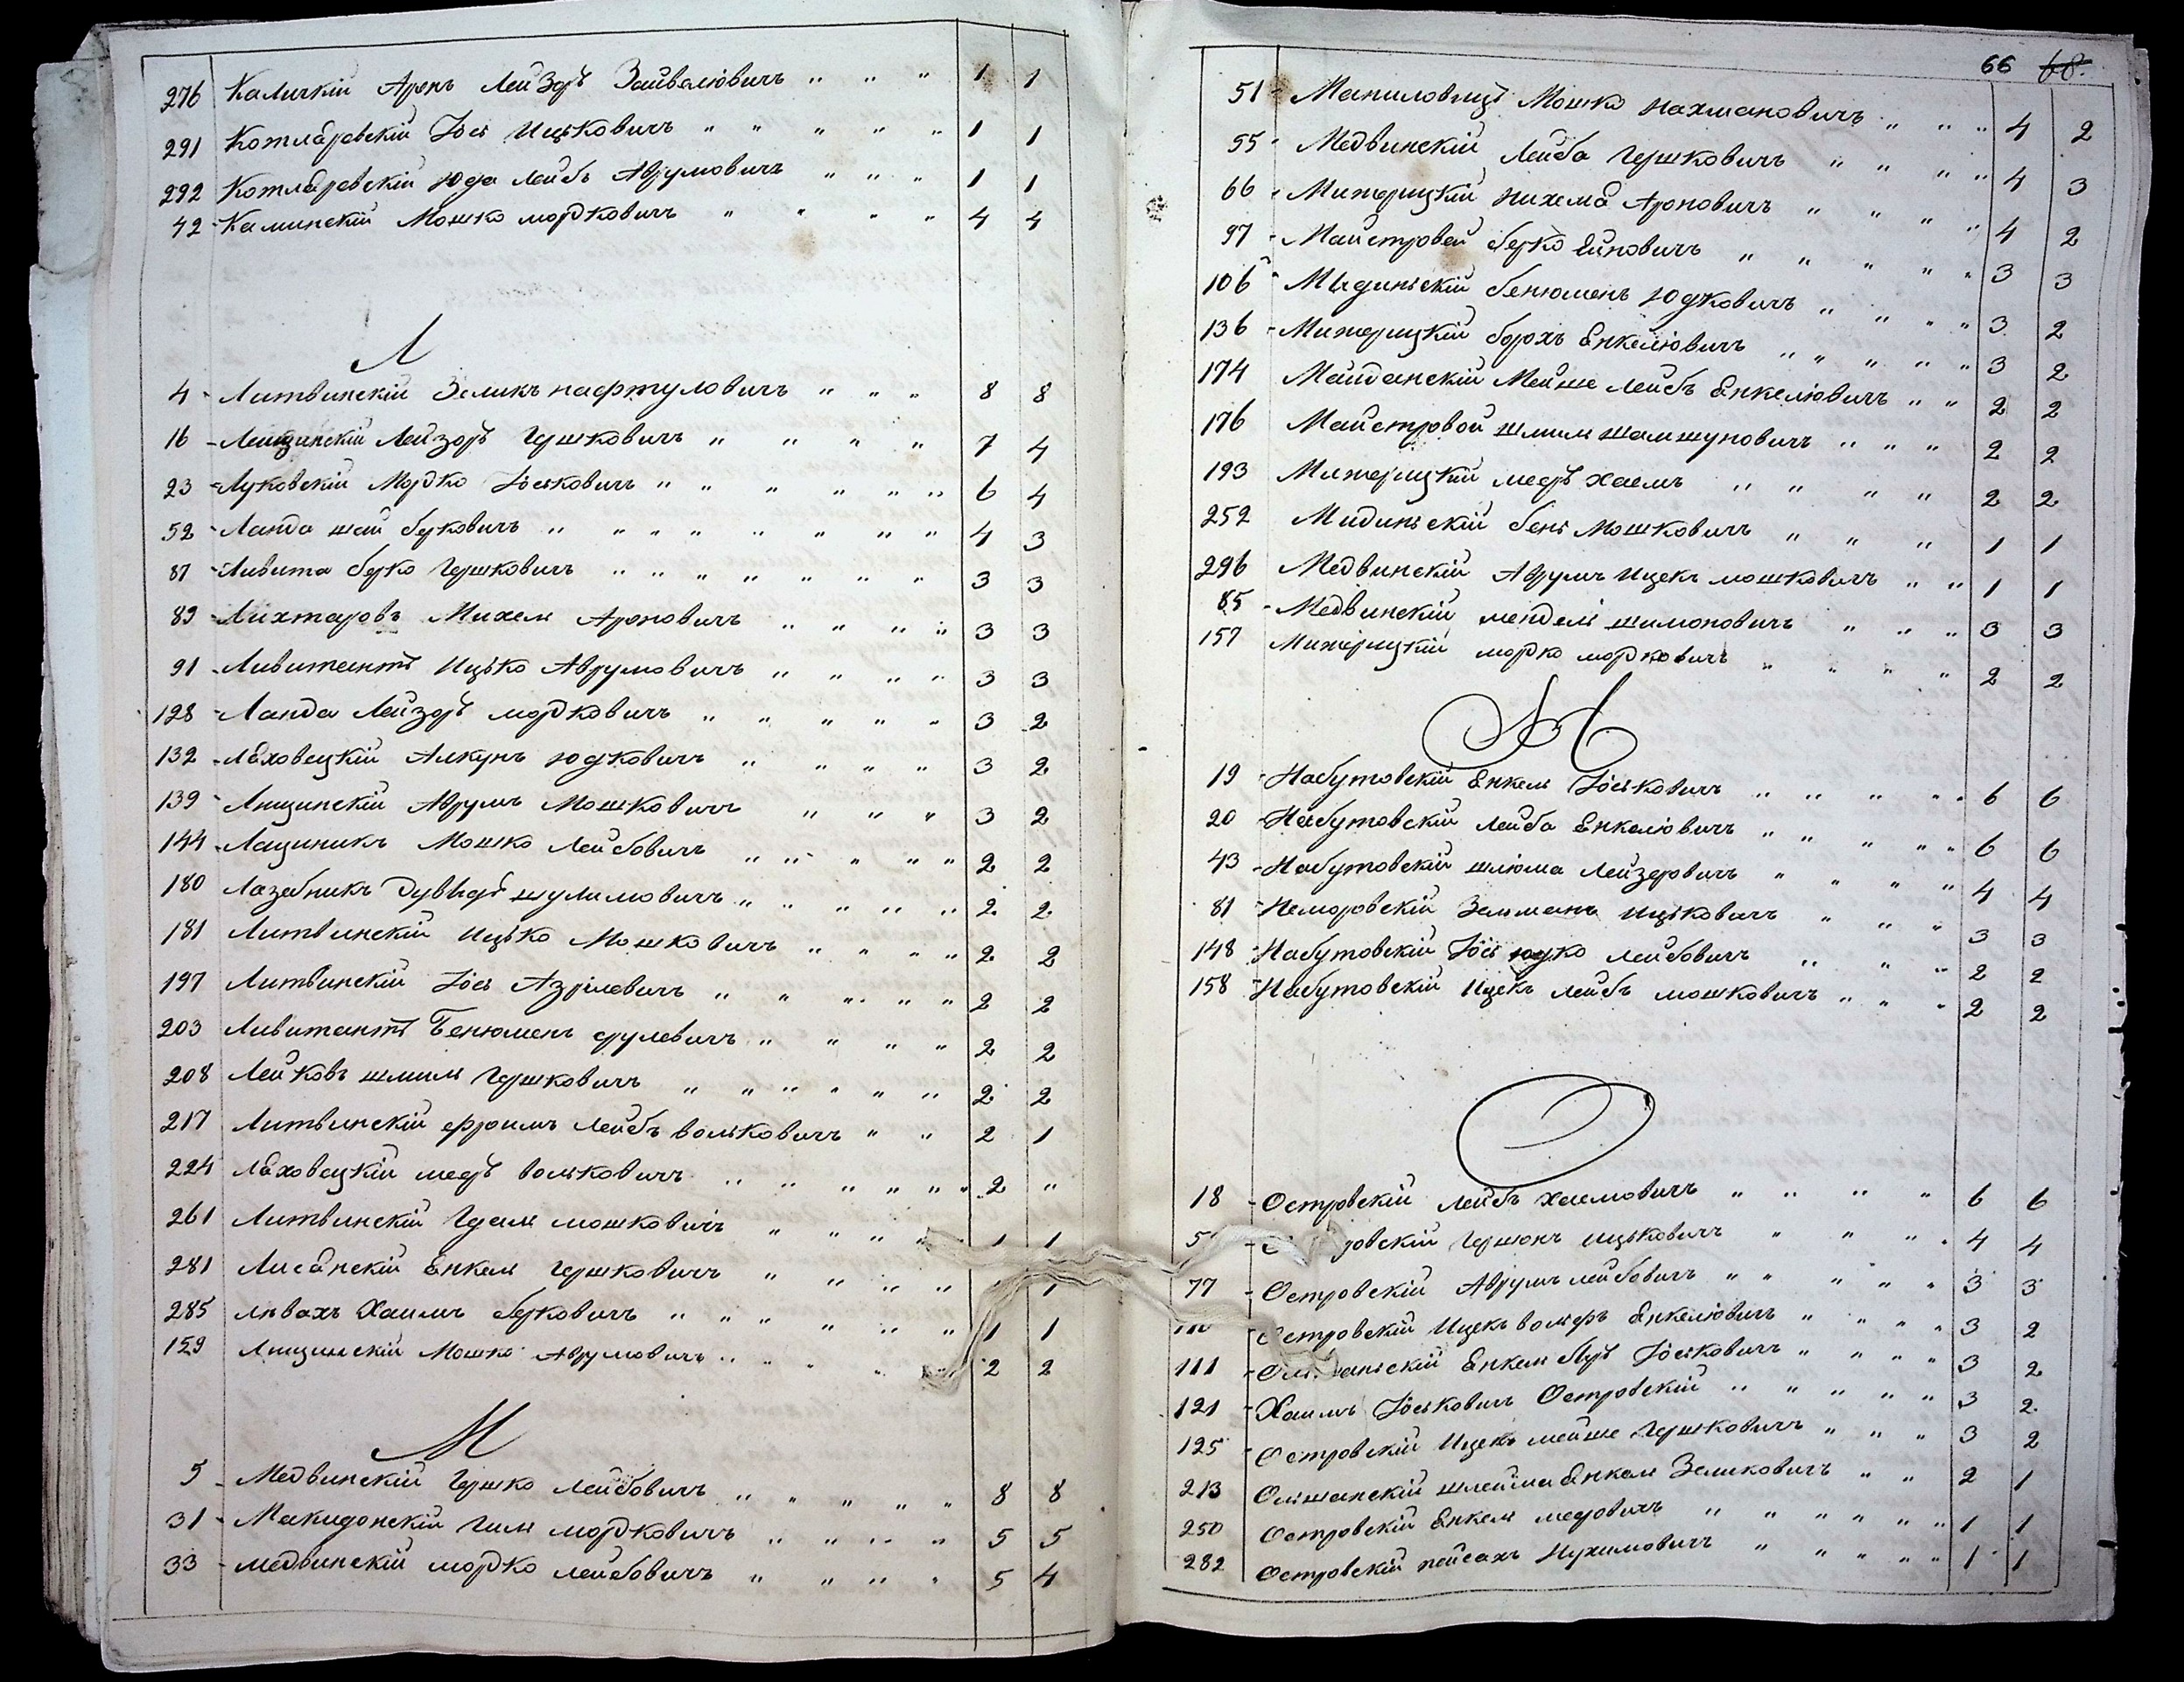 276 Каличкій Аронъ Лейзоръ Зайвелiовичъ " " " 1 1
291 Котляревскій Іось Ицьковичъ " " " " " 1 1
292 Котляревскій Юда Лейбъ Аврумовичъ " " " 1 1
42 - Каминскій Мошко Мордковичъ " " " " 4 4
Л
4 - Литвинскій Зеликъ Нафтуловичъ " " " 8 8
16 - Лещинскій Лейзоръ Гершковичъ " " " " 7 4
23 - Луковскій Мордко Іоськовичъ " " " " " " 6 4
52 - Ланда Шай Берковичъ " " " " " " " " 4 3
87 - Ливита Берко Гершковичъ " " " " " " " " 3 3
89 - Лихтаровъ Михель Ароновичъ " " " " 3 3
91 - Ливитантъ Ицько Аврумовичъ " " " " 3 3
128 - Ланда Лейзоръ Мордковичъ " " " " " 3 2
132 - Ляховецкій Алкунъ Юдковичъ " " " " 3 2
139 - Лищинскій Аврумъ Мошковичъ " " " 3 2
144 - Лащиникъ Мошко Лейбовичъ " " " " " 2 2
180 Лазебникъ Дувидъ Шулимовичъ " " " " " 2 2
181 Литвинскій Ицько Мошковичъ " " " " 2 2
197 Литвинскій Іось Азрілевичъ " " " " " 2 2
203 Ливитантъ Бенюменъ Срулевичъ " " " " 2 2
208 Лейковъ Шмилъ Гершковичъ " " " " " " 2 2
217 Литвинскій Фроимъ Лейбъ Вольковичъ " " 2 1
224 Ляховецкій Мееръ Вольковичъ " " " " " " 2 "
261 Литвинскій Гдаль Мошковичъ " " " " " 1 1
281 Лисянскій Енкель Гершковичъ " " " " 1
285 Ливахъ Хаимъ Берковичъ " " " " " " 1 1
159 Лищинскій Мошко Аврумовичъ " " " " " 2 2
М
5 - Медвинскій Гершко Лейбовичъ " " " " " 8 8
31 - Макидонскій Гиль Мордковичъ " " " " 5 5
33 - Медвинскій Мордко Лейбовичъ " " " " 5 4
66 68.
51 - Маниловицъ Мошко Нахмановичъ " " " 4 2
55 - Медвинскій Лейба Гершковичъ " " " " 4 3
66 - Мижерицкій Нихемя Ароновичъ " " " " 4 2
97 - Майстровей Берко Ейновичъ " " " " " 3 3
106 - Мидинскій Бенюменъ Юдковичъ " " " " 3 2
136 - Мижерицкій Борохъ Енкелiовичъ " " " " " 3 2
174 Майданскій Мейше Лейбъ Енкелiовичъ " " 2 2
176 Майстровой Шмилъ Шамшуновичъ " " " 2 2
193 Мижерицкій Мееръ Хаемъ " " " " 2 2
252 Мидинскій Бень Мошковичъ " " " 1 1
296 Медвинскій Аврумъ Ицекъ Мошковичъ " " 1 1
85 - Медвинскій Мендель Шимоновичъ " " " 3 3
157 Мижерицкій Морко Морковичъ " " " " 2 2
Н
19 - Набутовскій Енкель Іоськовичъ " " " " " 6 6
20 - Набутовскій Лейба Енкелiовичъ " " " " " 6 6
43 - Набутовскій Шлiома Лейзеровичъ " " " " 4 4
81 - Немировскій Зельманъ Ицьковичъ " " " 3 3
148 - Набутовскій Іось Юдко Лейбовичъ " " " 2 2
158 - Набутовскій Ицекъ Лейбъ Мошковичъ " " " 2 2
О
18 - Островскій Лейбъ Хаемовичъ " " " " 6 6
Гершонъ Ицьковичъ " " " " 4 4
77 - Островскій Аврумъ Лейбовичъ " " " " " 3 3
Островскій Ицекъ Вольфъ Енкелiовичъ " " " " 3 2
111 - Енкель Беръ Іоськовичъ " " " " 3 2
121 - Хаимъ Іоськовичъ Островскій " " " " " 3 2
125 - Островскій Ицекъ Мейше Гершковичъ " " " 3 2
213 Ольшанскій Шлейма Енкель Зельковичъ " " 2 1
250 Островскій Енкель Меровичъ " " " " " " 1 1
282 Островскій Пейсахъ Нухимовичъ " " " " " 1 1